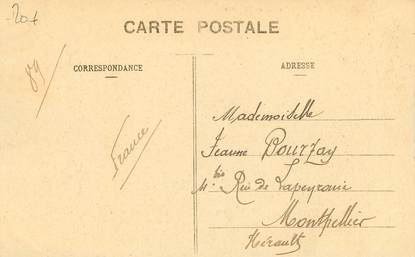 20+
CARTE POSTALE
89
CORRESPONDANCE
ADRESSE
France
Mademoiselle
Jeanne Pourzay
bis Rue de Lapeyronie
Montpellier
Hérault